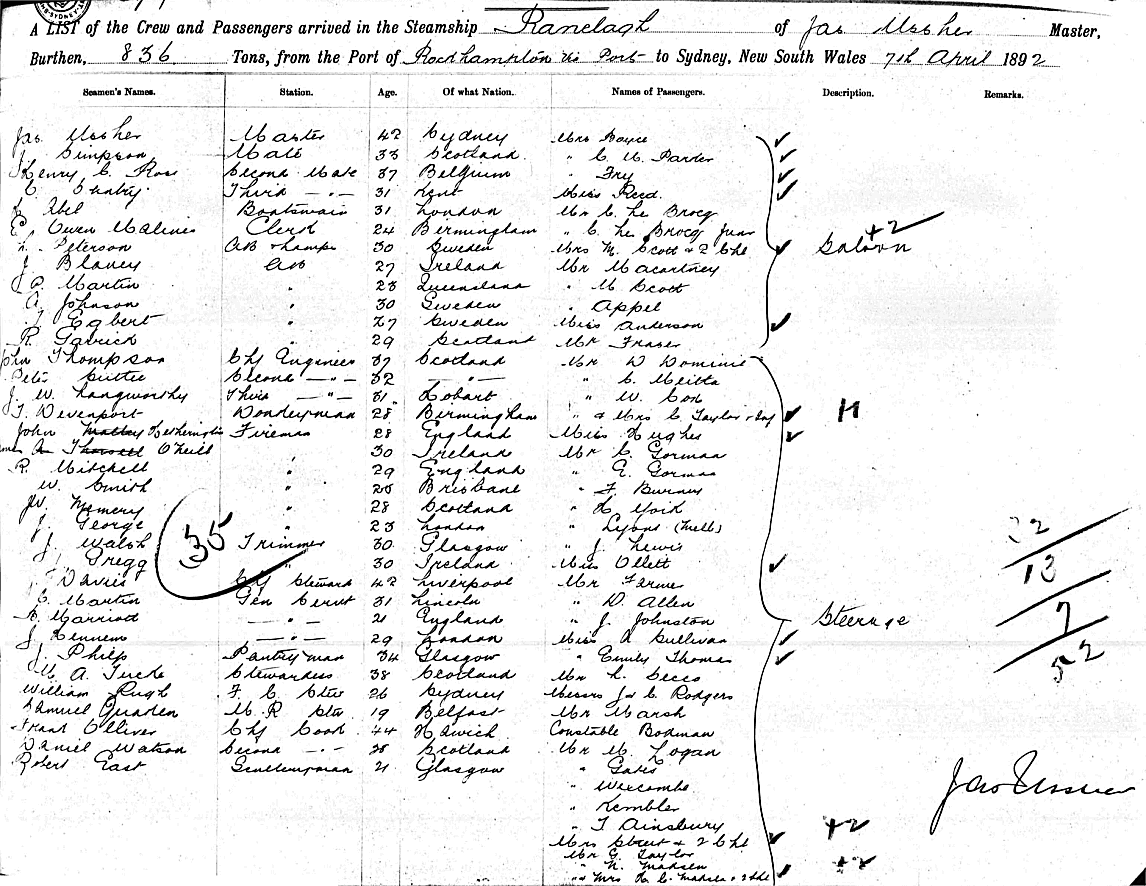 A LIST of the Crew and Passengers arrived in the Steamship Ranelagh of Jas Ussher Master,
Burthen, 836 Tons, from the Port of Rockhampton via Port to Sydney, New South Wales 7th April 1892
Seamen's Names. Station. Age. Of what Nation. Names of Passengers. Description. Remarks.
Jas Ussher Master 42 Sydney Mrs Boyce
J. Simpson Mate 33 Scotland " C M Parker
Henry C. Ross Second Mate 37 Belgium " Fry
Third - " - 31 Kent Miss Reed.
J. Abel Boatswain 31 London Mr C. Le Brocq
E. Owen Malines Clerk 24 Birmingham " C Le Brocq Junr
Peterson AB & Lamps 30 Sweden Mrs M. Scott & 2 Chl Saloon +2
J. Blaney AB 27 Ireland Mr Macartney
P. Martin " 23 Queensland " M Scott
A. Johnson " 30 Sweden " Appel
J Egbert " 27 Sweden Miss Anderson
R. Garrick " 29 Scotland Mr Fraser
John Thompson Chf Engineer 37 Scotland Mr D Dominie
Peter Second - " - 32 - " - " C.
J. W. Langworthy Third - " - 31 Hobart " W. Cox
T. Devenport Donkeyman 28 Birmingham " & Mrs C Taylor
John Hetherington Fireman 28 England Miss Hughes
O'Neill " 30 Ireland Mr C. Gorman
R. Mitchell " 29 England " E. Gorman
W. Smith " 25 Brisbane " F Burney
W. Memery " 28 Scotland " H York
J. George " 23 London " Lyons
J. Walsh Trimmer 30 Glasgow " J. Lewis
Gregg " 30 Ireland Miss Ollett
Davies Chf Steward 42 Liverpool Mr Farmer
C. Martin Gen Servt 31 Lincoln " D. Allen
Marriott - " - 21 England " J. Johnston Steerage
J. Kennem - " - 29 London Miss A Sullivan
J. Philp Pantryman 34 Glasgow " Emily Thomas
M. A. Tucke Stewardess 38 Scotland Mr L. Secco
William Pugh F. C. Stew 26 Sydney Messrs J & C Rodgers
Samuel Quaden M. R Stw 19 Belfast Mr Marsh
Frank Olliver Chf Cook 44 Harwich Constable Bodman
Daniel Watson Second - " - 25 Scotland Mr M. Logan
Robert East 21 Glasgow " Gates
" Wiccombe
" Kembler
" T Ainsbury
Mrs Street & 2 Chl +2
Mr G. Taylor
" N. Madsen
" & Mrs H. C. Madsen & 2 Chl +2
35
22
13
7
52
Jas Ussher